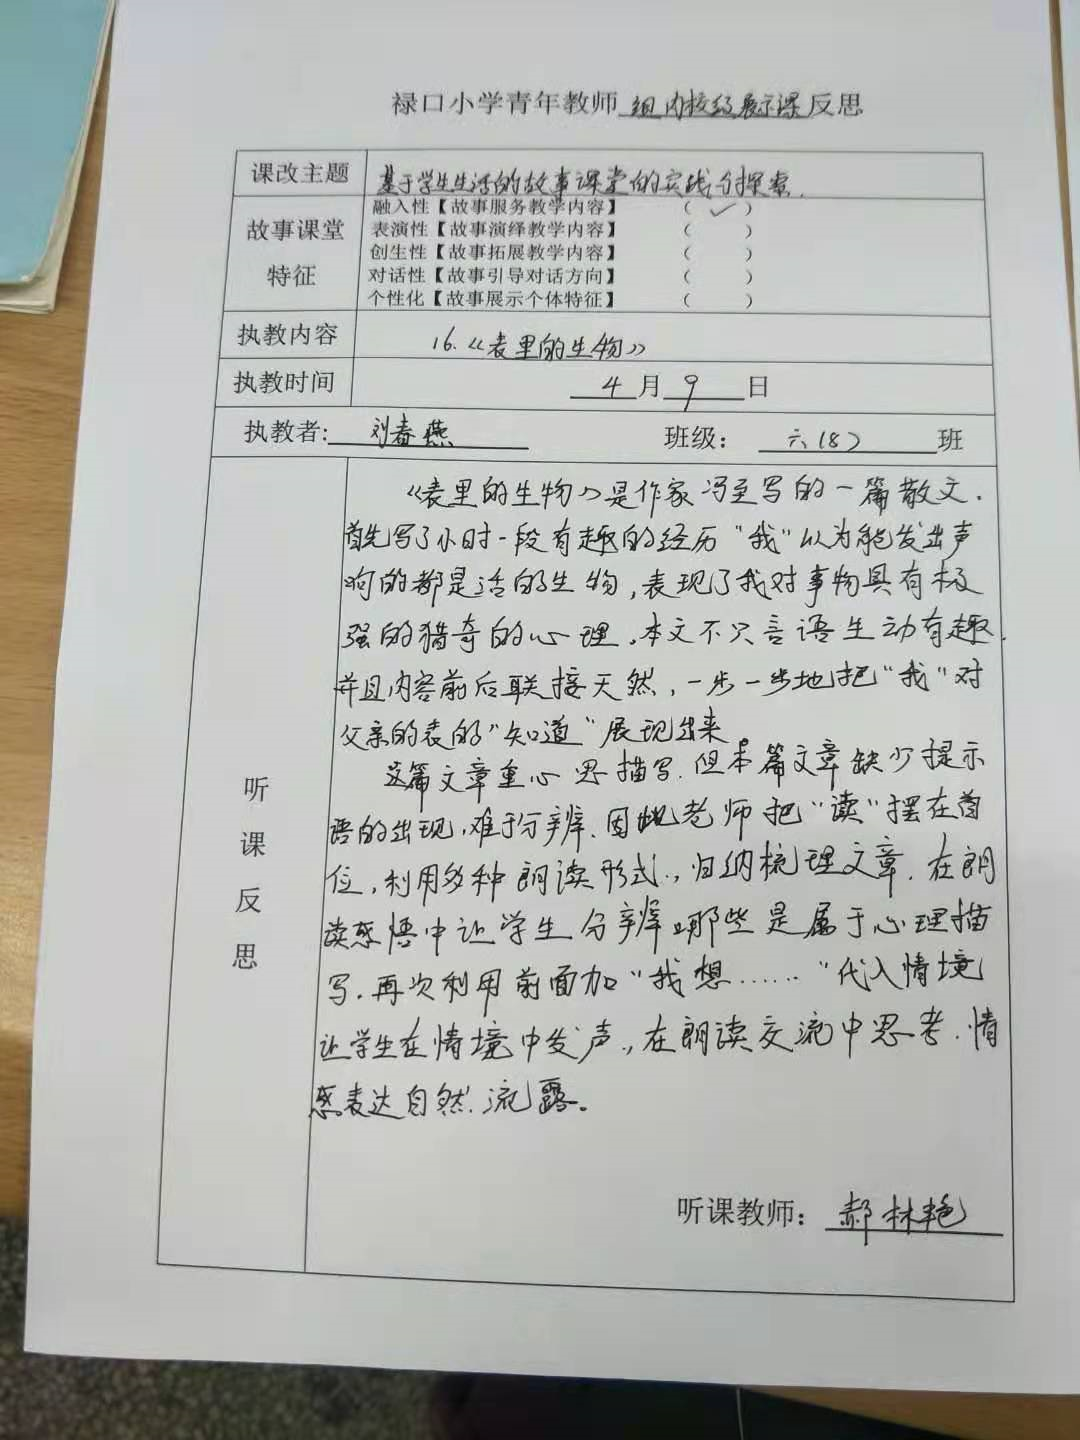 禄口小学青年教师组内校级展示课反思
课改主题 基于学生生活的故事课堂的实践与探索.
故事课堂特征
融入性【故事服务教学内容】 （ ✓ ）
表演性【故事演绎教学内容】 （ ）
创生性【故事拓展教学内容】 （ ）
对话性【故事引导对话方向】 （ ）
个性化【故事展示个体特征】 （ ）
执教内容 16.《表里的生物》
执教时间 4月9日
执教者:刘春燕 班级：六（8）班
听课反思
《表里的生物》是作家冯至写的一篇散文.
首先写了小时一段有趣的经历"我"以为能发出声
响的都是活的生物,表现了我对事物具有极
强的猎奇的心理.本文不只言语生动有趣.
并且内容前后联接天然,一步一步地把"我"对
父亲的表的"知道"展现出来
这篇文章重心思描写.但本篇文章缺少提示
语的出现,难于分辨.因此老师把"读"摆在首
位,利用多种朗读形式.,归纳梳理文章.在朗
读感悟中让学生分辨哪些是属于心理描
写.再次利用前面加"我想……"代入情境
让学生在情境中发声.,在朗读交流中思考.情
感表达自然.流露。
听课教师：郝林艳